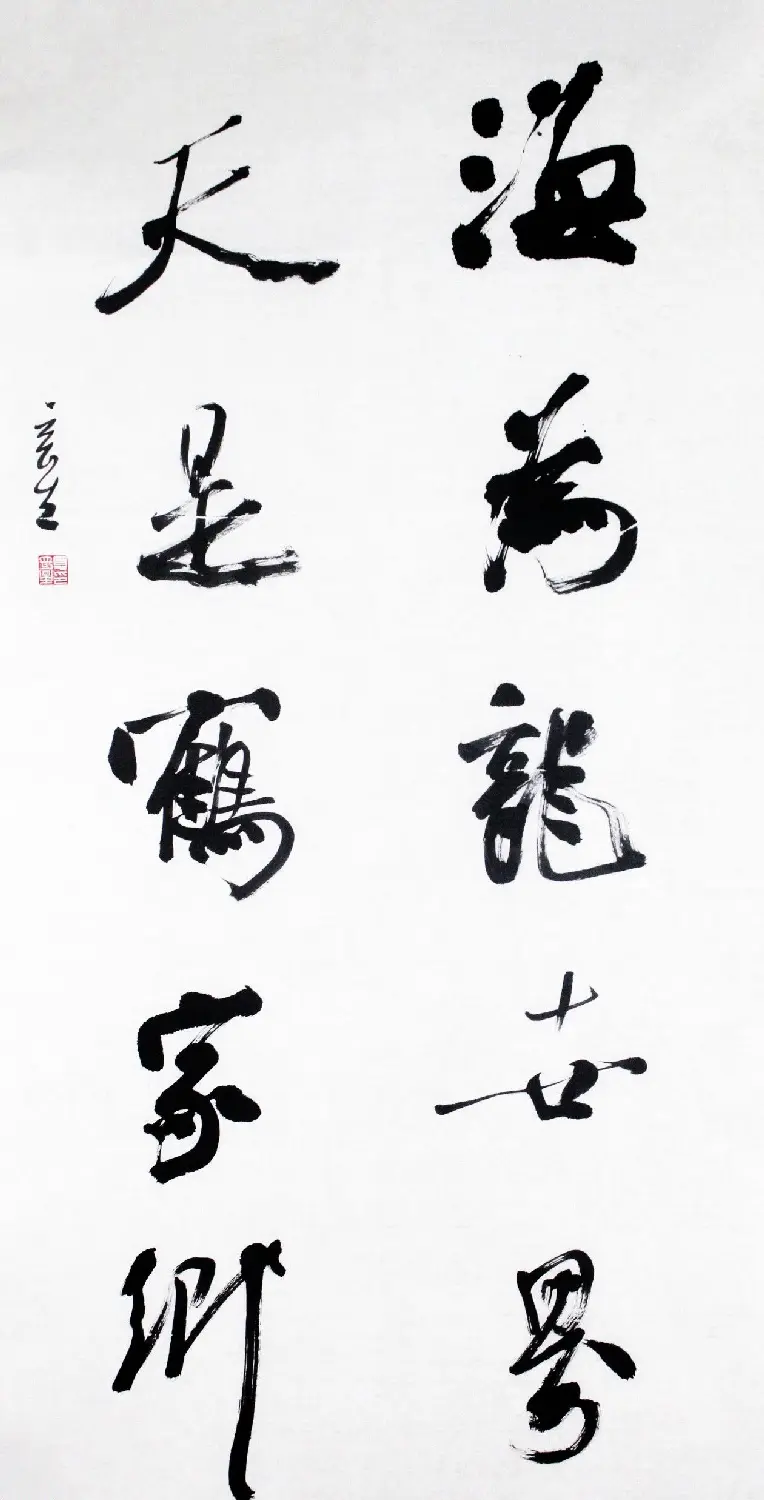 海为龍世界
天是鶴家鄉